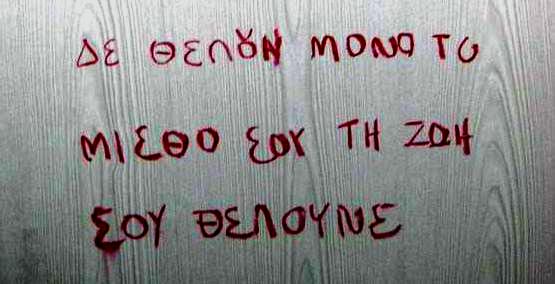 ΔΕ ΘΕΛΟΥΝ ΜΟΝΟ ΤΟ
ΜΙΣΘΟ ΣΟΥ ΤΗ ΖΩΗ
ΣΟΥ ΘΕΛΟΥΝΕ